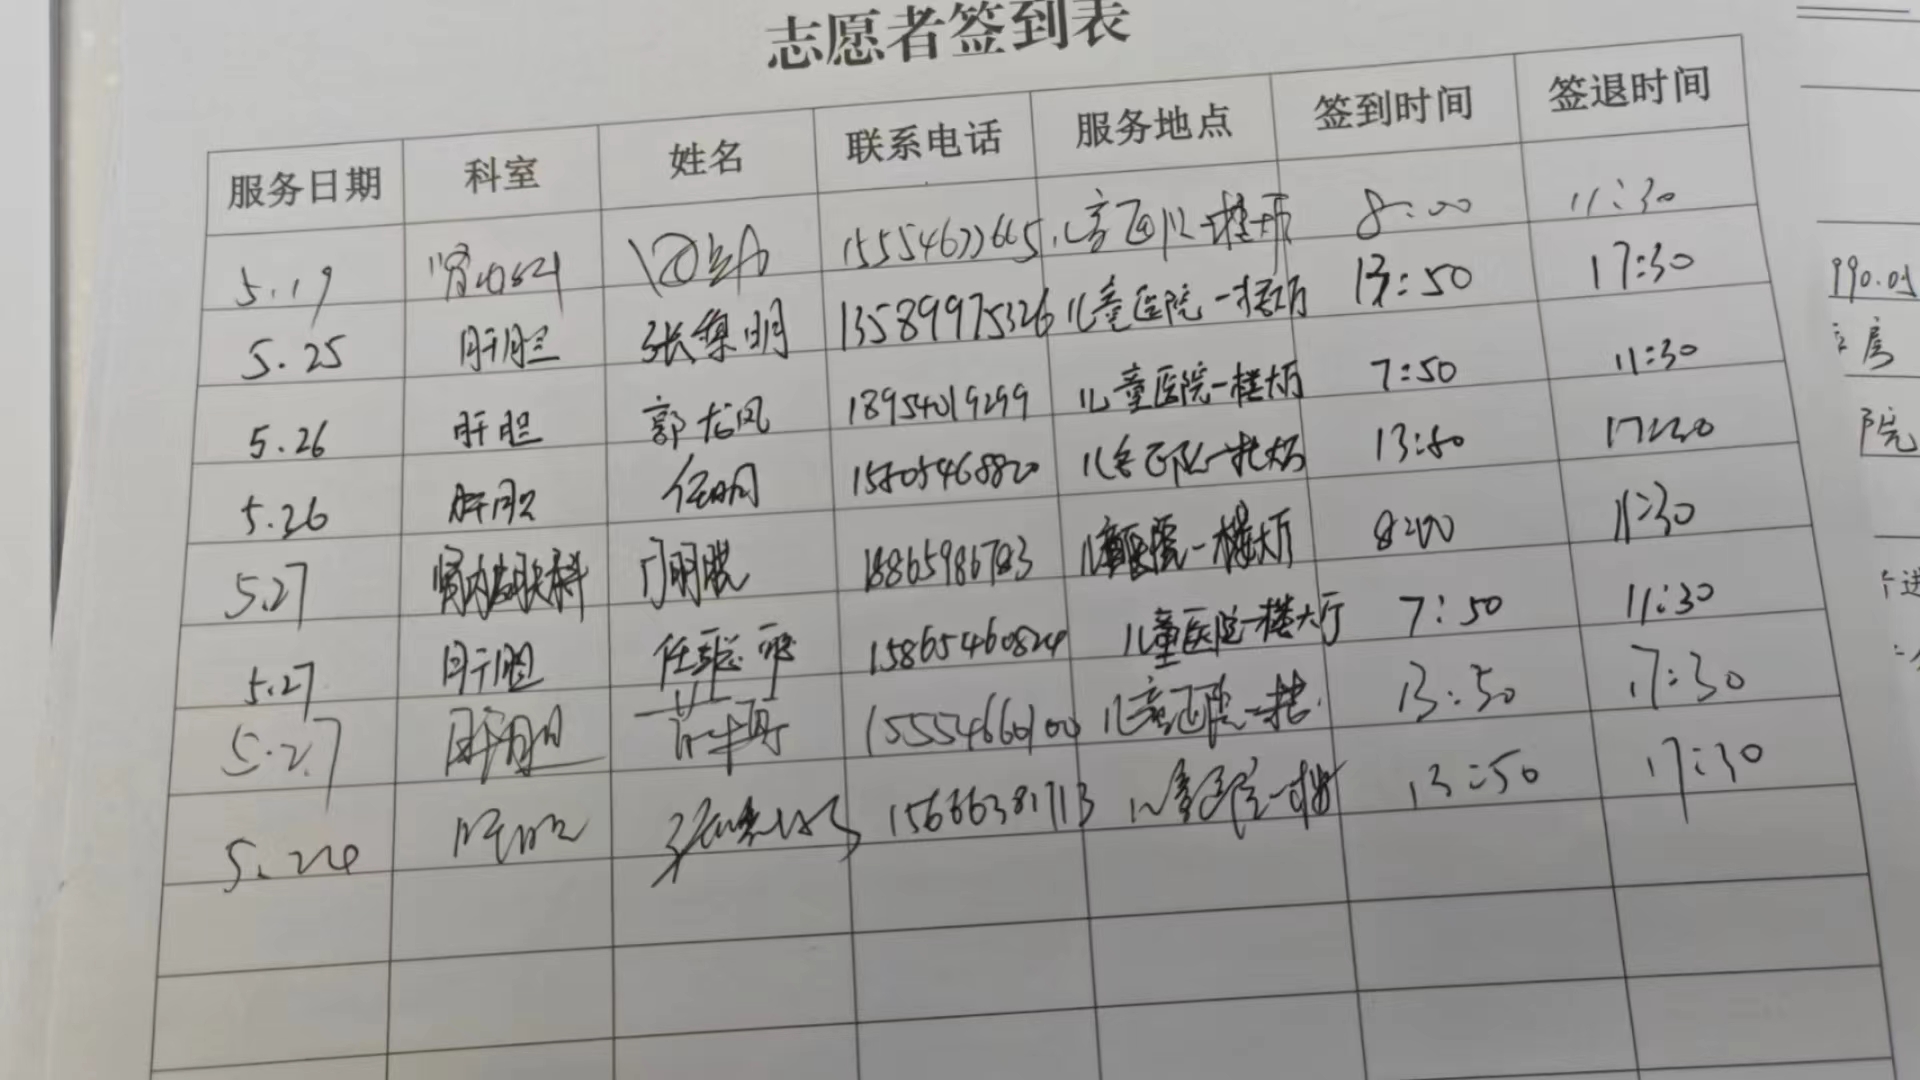 志愿者签到表
服务日期 科室 姓名 联系电话 服务地点 签到时间 签退时间
5.19 15554677665 儿童医院一楼大厅 8:00 11:30
5.25 肝胆 张集明 13589975326 儿童医院一楼大厅 13:50 17:30
5.26 肝胆 郭龙凤 18954019299 儿童医院一楼大厅 7:50 11:30
5.26 肝胆 任明 15805468820 儿童医院一楼大厅 13:50 17:30
5.27 门明悦 18865986783 儿童医院一楼大厅 8:00 11:30
5.27 肝胆 任聪 15865460824 儿童医院一楼大厅 7:50 11:30
5.27 肝胆 15554660100 儿童医院一楼 13:50 17:30
肝胆 15666381713 儿童医院一楼 13:50 17:30
990.05
房
院
个进